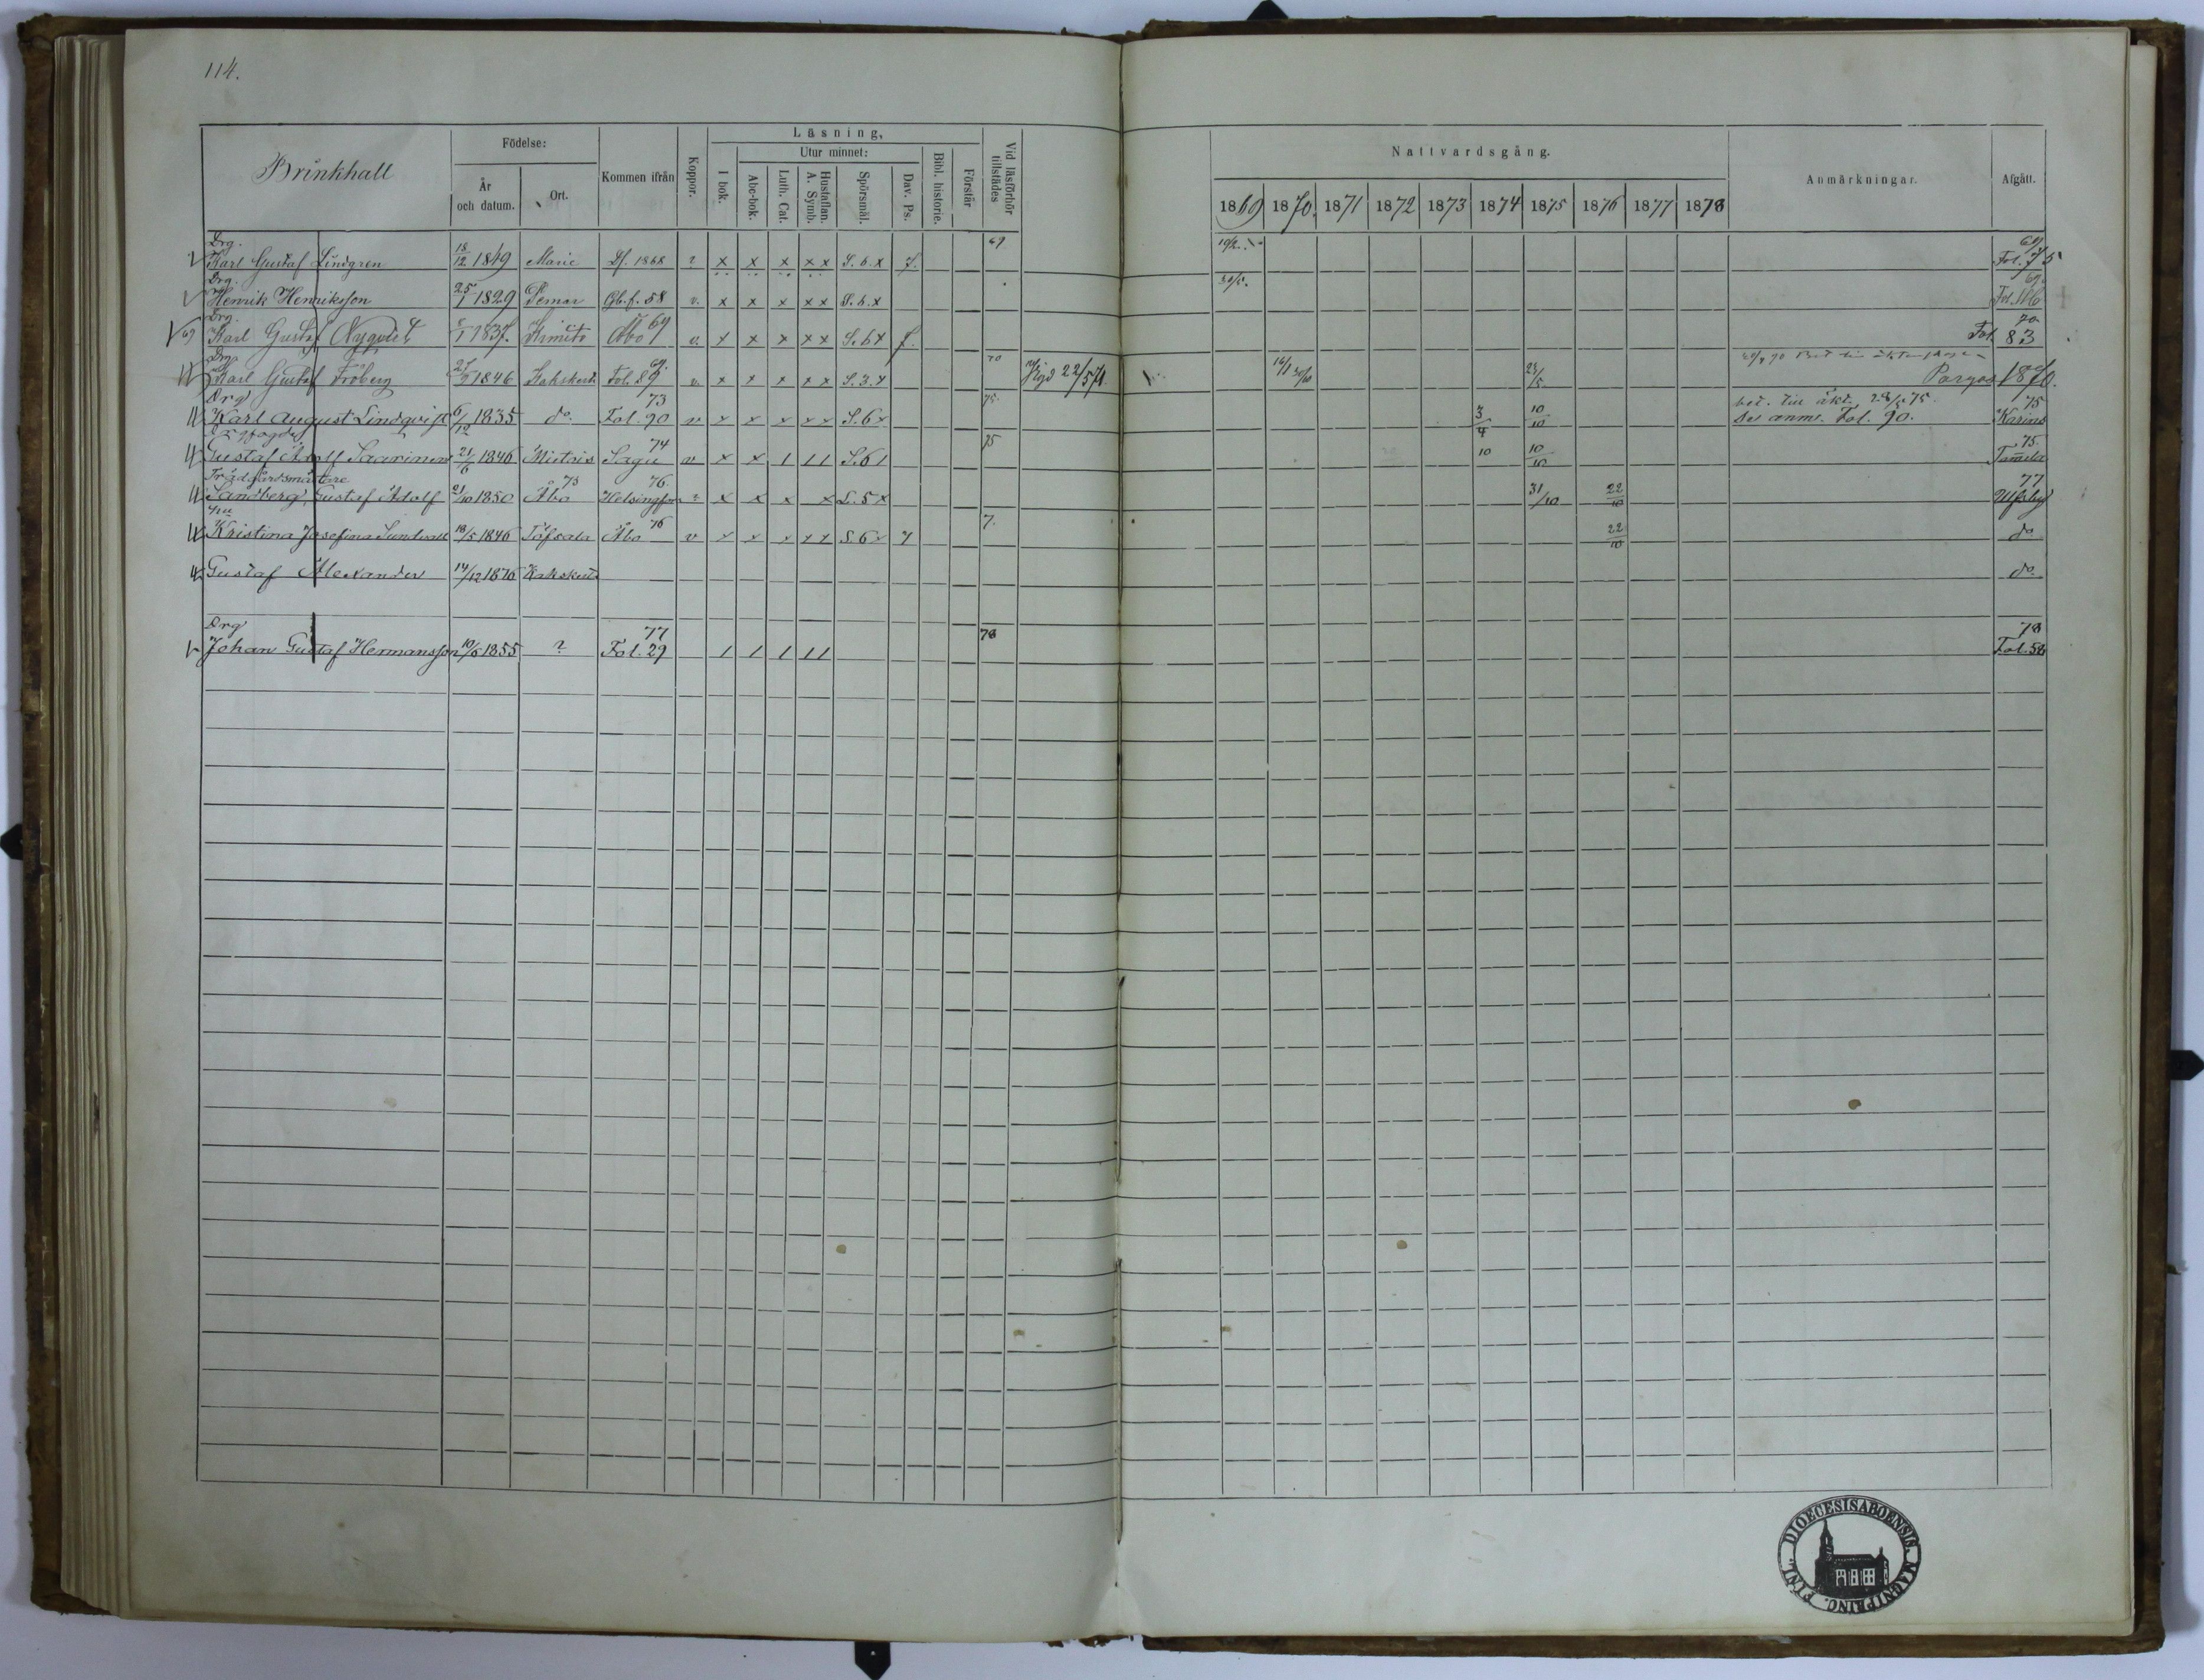 114.
Brinkhall
Födelse:
År och datum.
Ort.
Kommen ifrån
Koppor.
Läsning,
I bok.
Utur minnet:
Abc-bok.
Luth. Cat.
Hustaflan. A. Symb.
Spörsmål.
Dav. Ps.
Bibl. historie.
Förstår
Vid läsförhör tillstädes
Nattvardsgång.
1869 1870. 1871 1872 1873 1874 1875 1876 1877 1878
Anmärkningar.
Afgått.
Drg. 69 69
Karl Gustaf Lindgren 18/12 1849 Marie Df. 1868 ? x x x x x S. 6. x f. 19/2. Fol. 75
Drg. 69.
Henrik Henriksson 25/1 1829 Pemar Gb. f. 58 v. x x x x x S. 6. x 30/5. Fol.
Drg. 69 70
69 Karl Gustaf Nyqvist 1 1837. Kimito Åbo v. x x x x x S. 6 x f. Fol. 83
Drg 69. 70
Karl Gustaf Fröberg 1846 Kakskerta Fol. 89 v. x x x x x S. 3. x 22/5 71. 23/5 Pargas 1870.
Drg 73 75. bet. till äkt. 75
Karl August Lindqvist 6/12 1835 do. Fol. 90 v x x x x x S. 6 x 3/4 10/10 Se anm. Fol. 90. Karins
74 75 75.
Gustaf Adolf Saarinen 21/6 1846 Mietois Sagu v x x 1 1 1 S. 6 1 10 10/10 Tammela
Trädgårdsmästare 73 76. 77
Sandberg, Gustaf Adolf 21/10 1850 Åbo Helsingfors ? x x x x S. 5 x 31/10 22/10 Ulfsby
76 7.
Kristina Josefina Sundvall 18/5 1846 Töfsala Åbo v x x x x x S. 6 x 7 22/10 do
Gustaf Alexander 14/12 1876 Kakskerta do.
Drg 77 78 78
Johan Gustaf Hermansson 10/6 1855 ? Fol. 29 1 1 1 1 1 Fol. 58
DIOECESIS ABOENSIS. MAGNI PRINC. FINL.